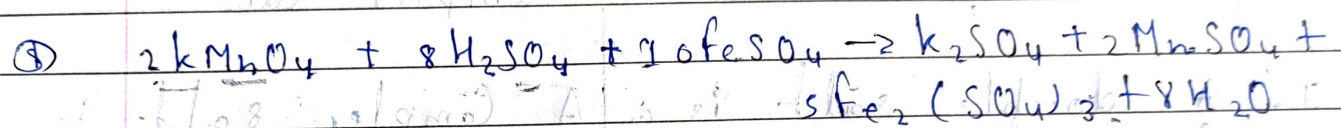 ⑧ 2KMnO4 + 8H2SO4 + 10FeSO4 → K2SO4 + 2MnSO4 +
5Fe2(SO4)3 + 8H2O